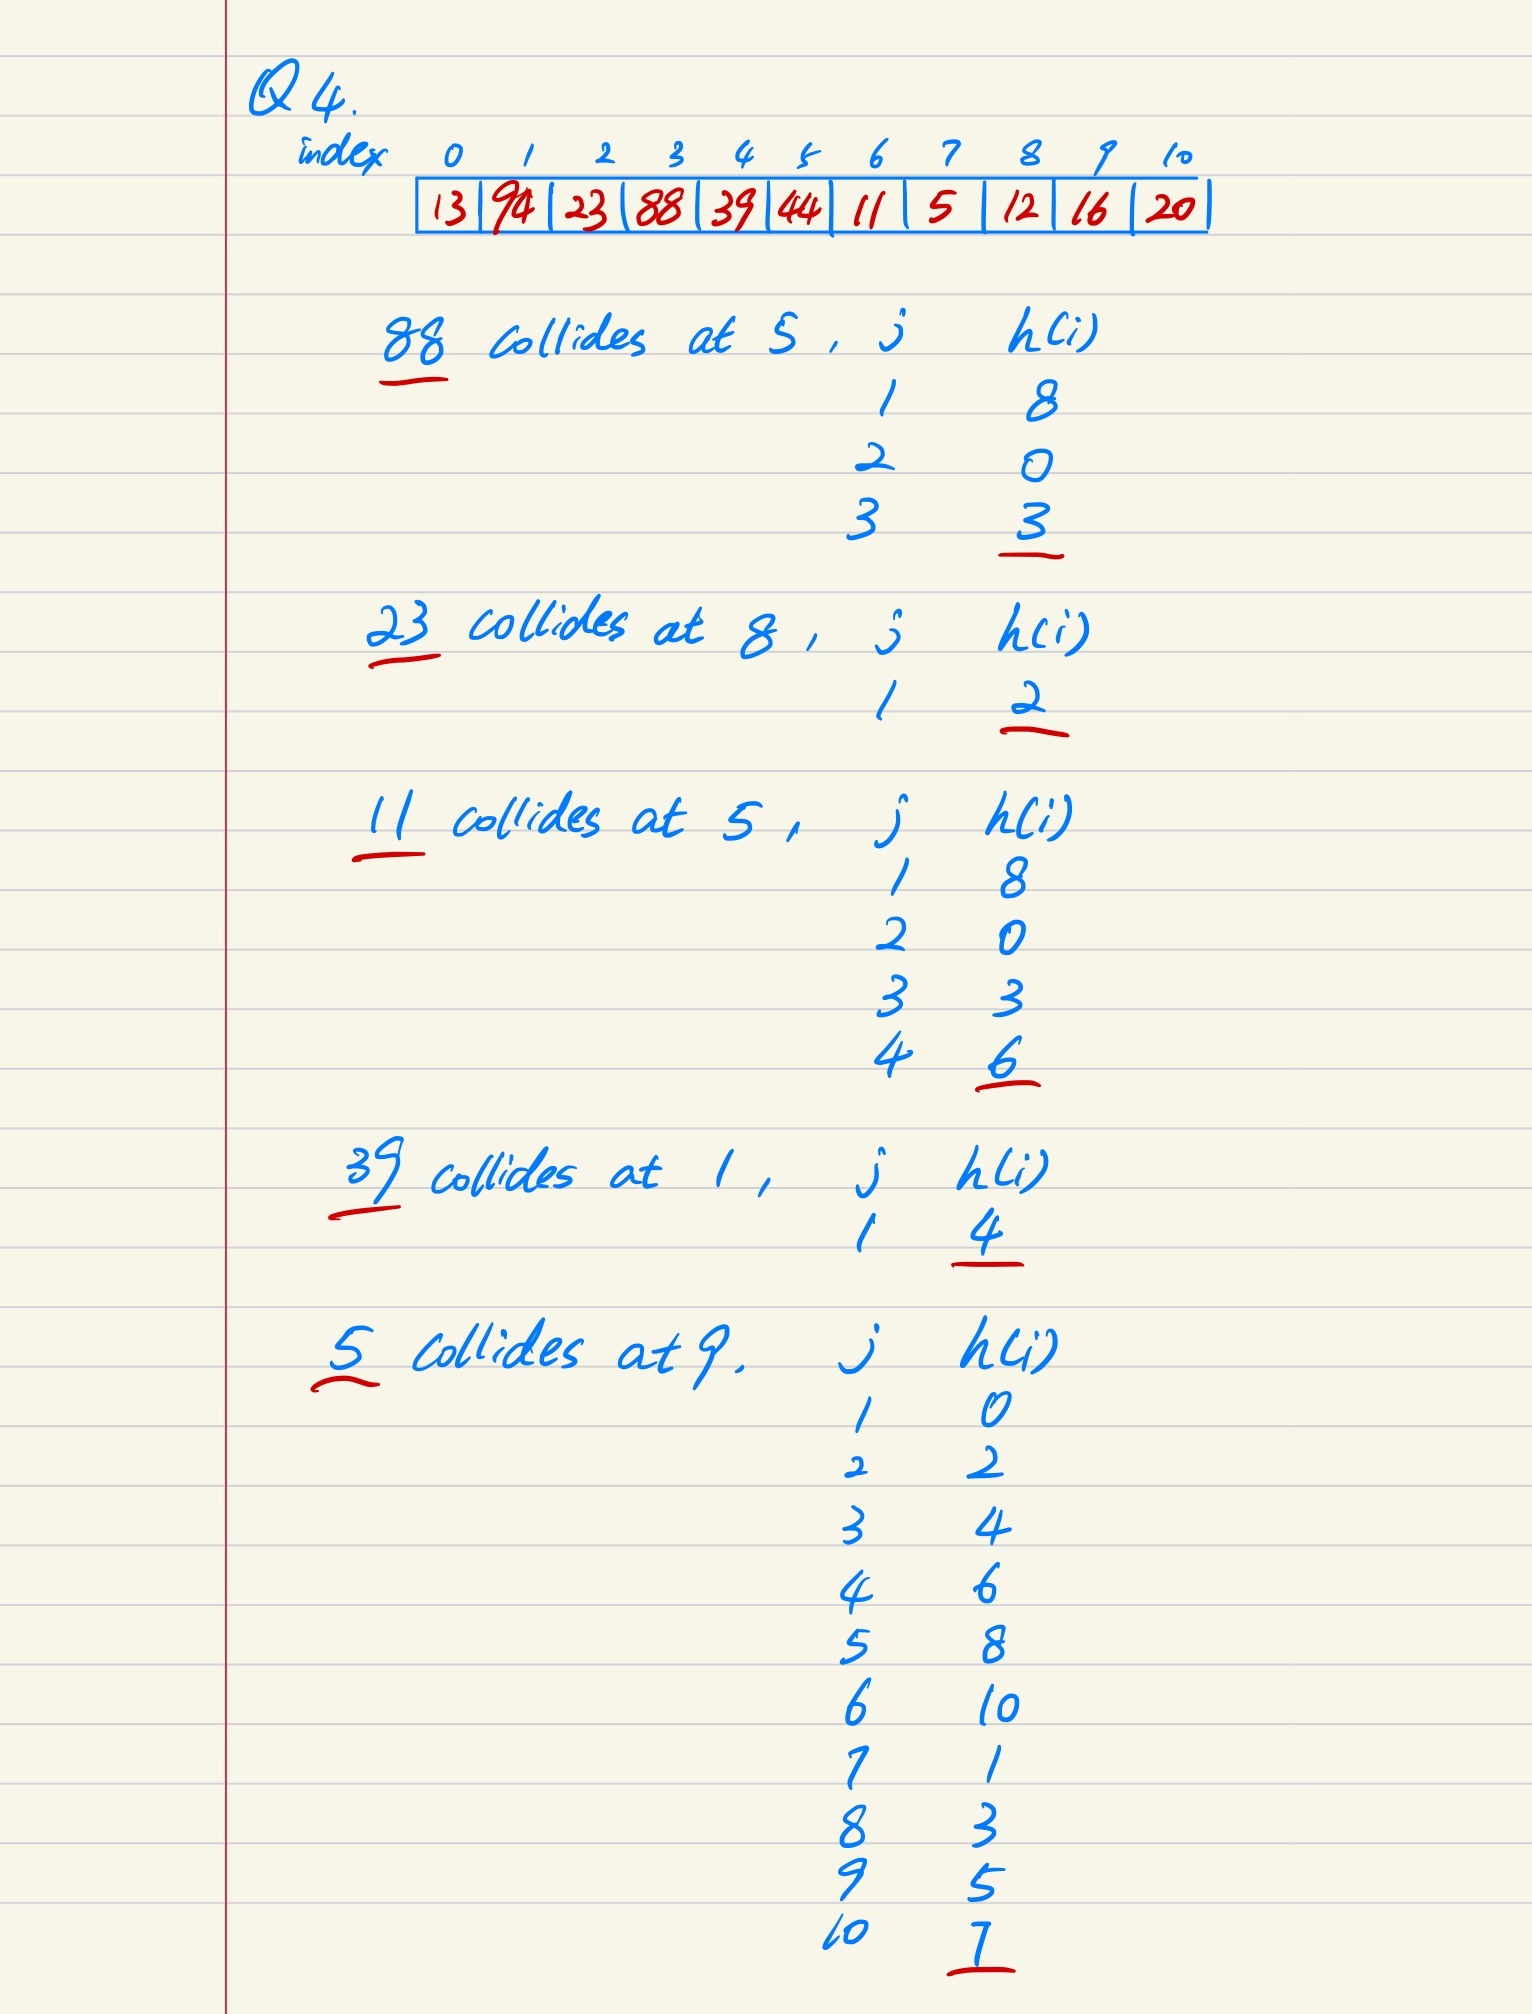 Q4.
index 0 1 2 3 4 5 6 7 8 9 10
13 94 23 88 39 44 11 5 12 16 20
88 collides at 5, j h(i)
1 8
2 0
3 3
23 collides at 8, j h(i)
1 2
11 collides at 5, j h(i)
1 8
2 0
3 3
4 6
39 collides at 1, j h(i)
1 4
5 collides at 9. j h(i)
1 0
2 2
3 4
4 6
5 8
6 10
7 1
8 3
9 5
10 7